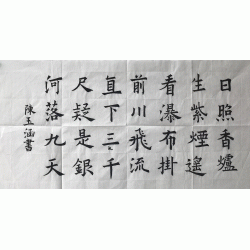 日照香爐
生紫煙遙
看瀑布掛
前川飛流
直下三千
尺疑是銀
河落九天
陳玉涵書